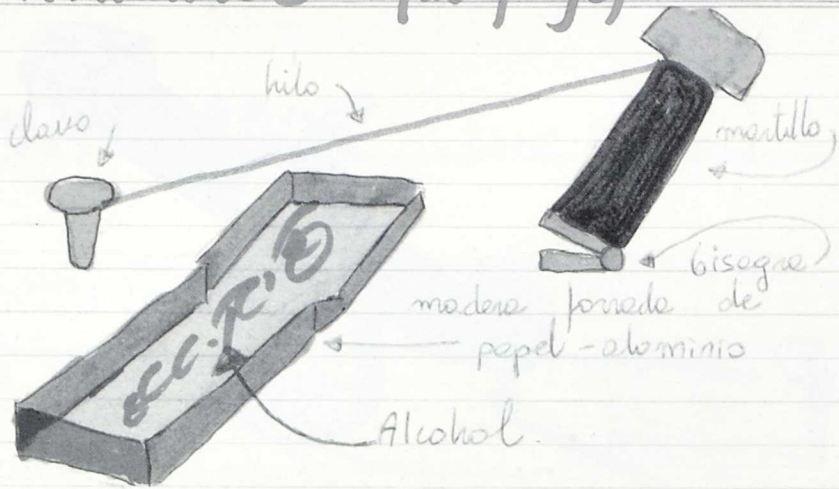 hilo
clavo
martillo
bisagra
madera forrada de
papel-aluminio
Alcohol.